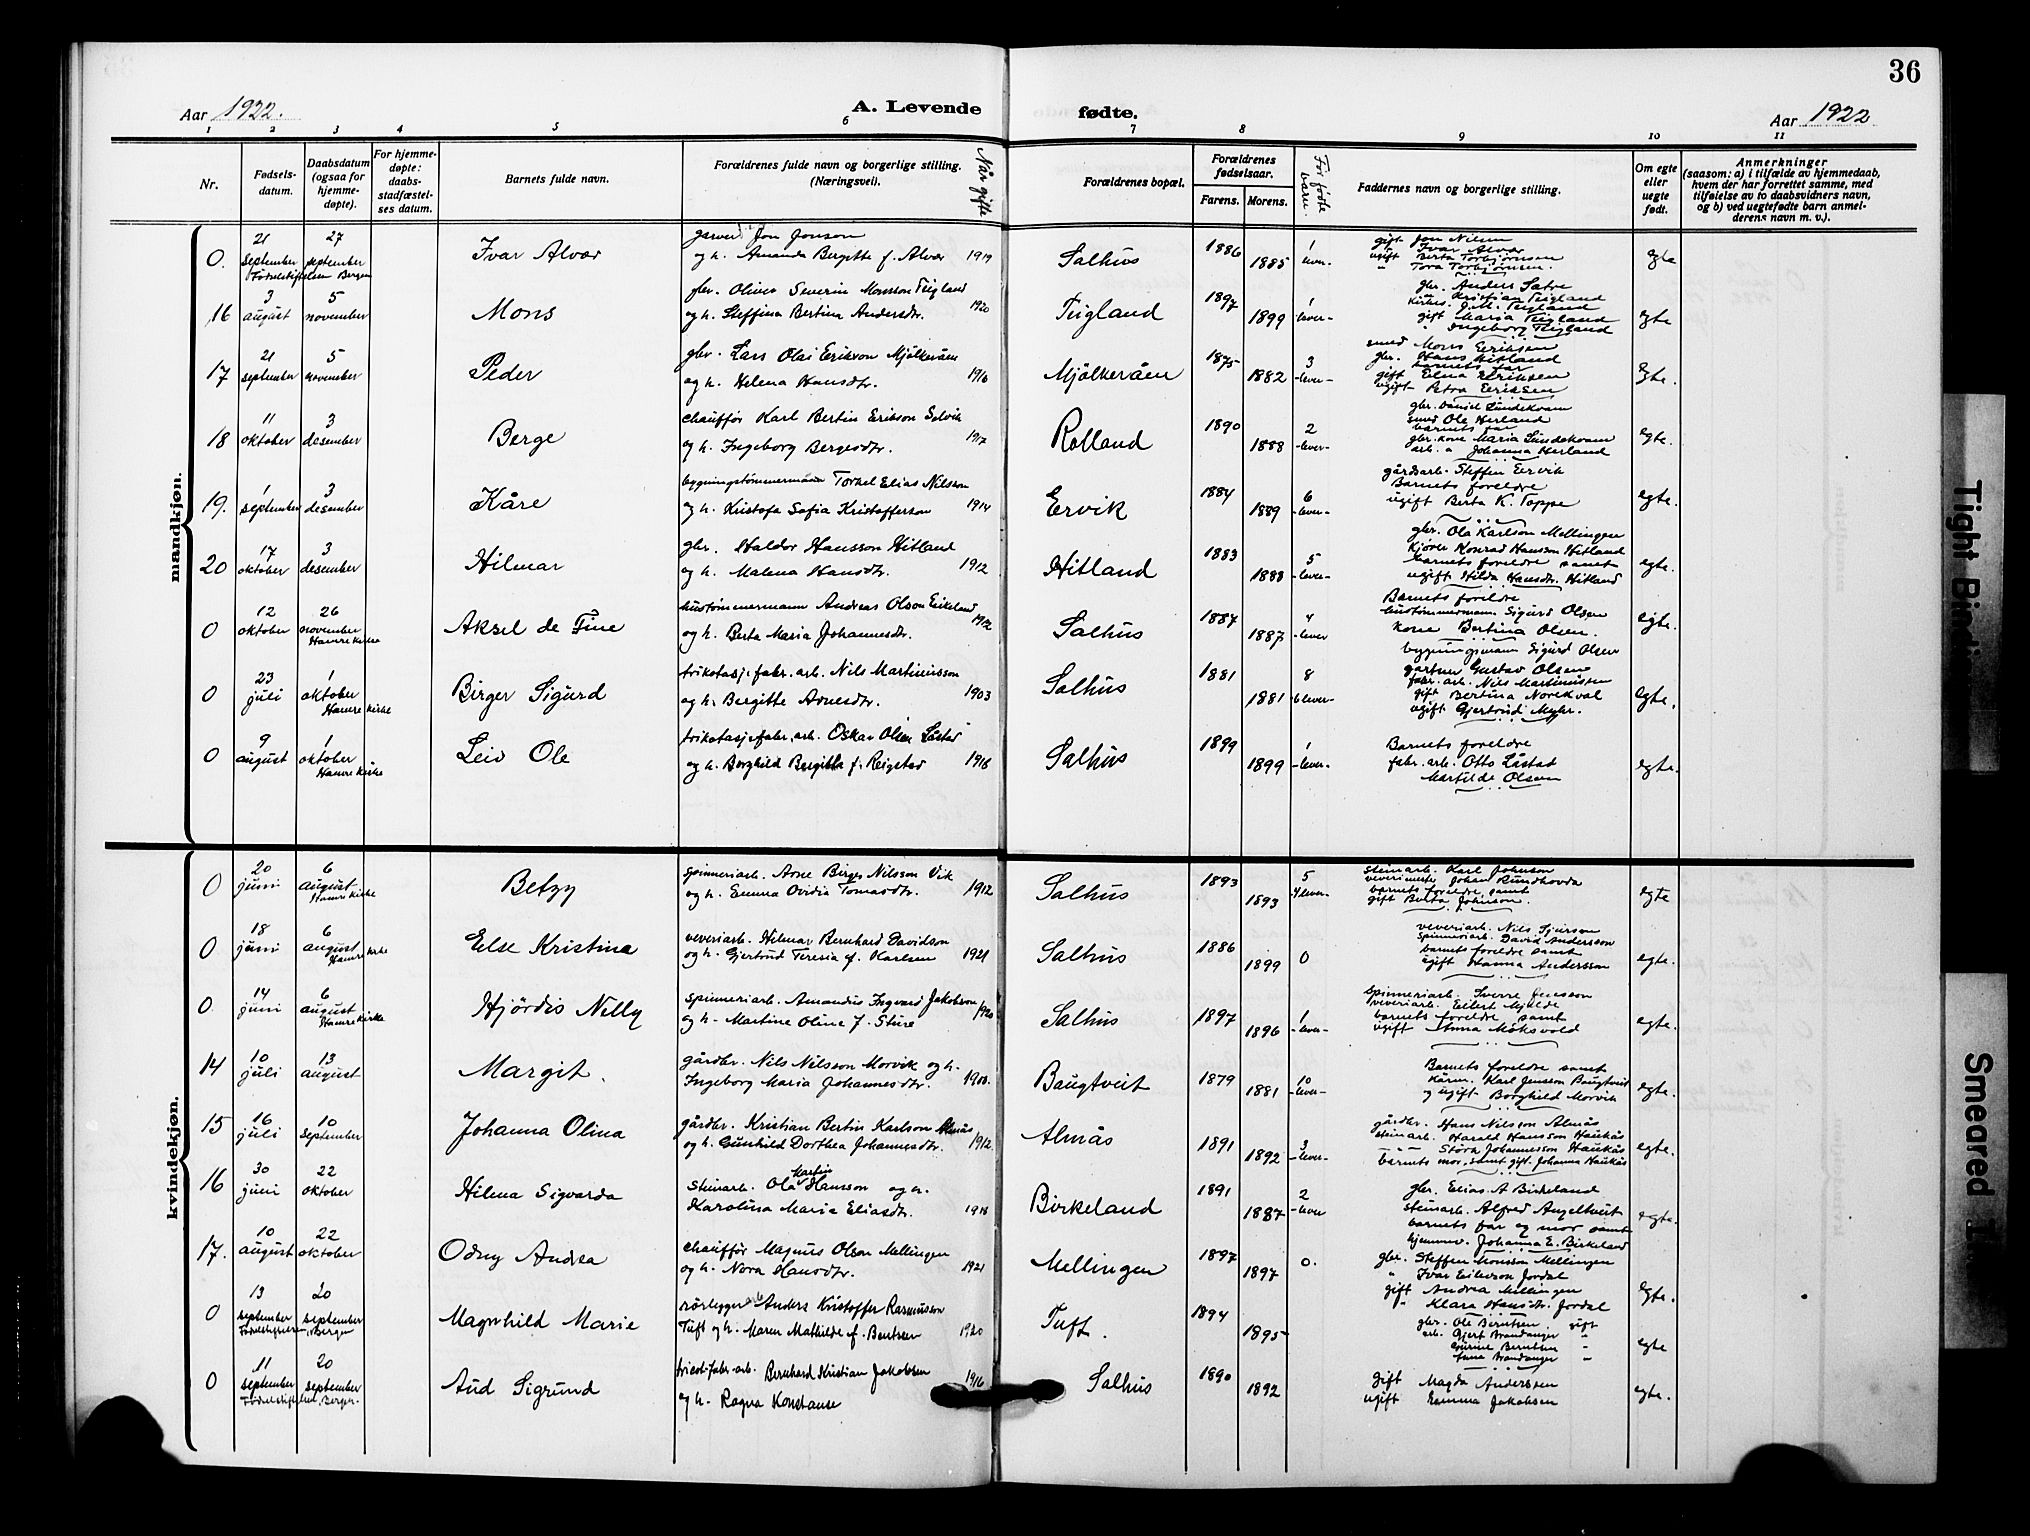 36
Aar 1922.
A. Levende fødte.
Aar 1922
1 2 3 4 5 6 7 8 9 10 11
Nr.
Fødsels-datum.
Daabsdatum (ogsaa for hjemme-døpte).
For hjemme-døpte: daabs-stadfæstel-ses datum.
Barnets fulde navn.
Forældrenes fulde navn og borgerlige stilling. (Næringsvei).
Når gifte
Forældrenes bopæl.
Forældrenes fødselsaar.
Farens. Morens.
Før fødte barn.
Faddernes navn og borgerlige stilling.
Om egte eller uegte født.
Anmerkninger
(saasom: a) i tilfælde av hjemmedaab,
hvem der har forrettet samme, med
tilføielse av to daabsvidners navn,
og b) ved uegtefødte barn anmel-
derens navn m. v.).
mandkjøn.
0. 21 september 27 september Fødselstiftelsen Bergen
Ivar Alvær
garver Jon Jonson
og h. Amanda Bergitte f. Alvær 1919
Salhus 1886 1885 1 -lever-
gift Jon Nilsen
Ivar Alvær
ugift Berta Torbjørnsen
" Tora Torbjørnsen.
egte
16 3 august 5 november
Mons
gbr. Oliver Severin Monsson Teigland
og h. Steffina Bertina Andersdtr. 1920
Teigland 1897 1899 1 -lever-
gbr. Anders Sætre
Kristian Teigland
gift Maria Teigland
" Ingeborg Teigland
egte
17 21 september 5 november
Peder
gbr. Lars Olai Erikson Mjölkeråen
og h. Helena Hansdtr. 1916
Mjölkeråen 1875 1882 3 -lever-
smed Mons Eriksen
gbr. Hans Hitland
barnets far
gift Elna Eriksen
ugift Petra Eriksen
egte.
18 11 oktober 3 desember
Berge
chauffør Karl Bertin Erikson Selvik
og h. Ingeborg Bergesdtr. 1917
Rolland 1890 1888 2 -lever-
gbr. Daniel Lundekvam
smed Ole Herland
barnets far
gbr. kone Maria Lundekvam
arb. " Johanna Herland
egte.
19. 1 september 3 desember
Kåre
bygningstømmermann Torkel Elias Nilsson
og h. Kristofa Sofia Kristofferson 1914
Ervik 1884 1889 6 -lever-
gårdsarb. Steffen Ervik
Barnets foreldre
ugift Berta K. Toppe
egte.
20 17 oktober 3 desember
Hilmar
gbr. Haldor Hansson Hitland
og h. Malena Hansdtr. 1912
Hitland 1883 1888 5 -lever-
gbr. Ola Karlson Mellingen
kjører Konrad Hansson Hitland
barnets foreldre samt
ugift Hilda Hansdtr. Hitland
egte.
0 12 oktober 26 november Hamre kirke
Aksel de Fine
hustömmermann Andreas Olson Eikeland
og h. Berta Maria Johannesdtr. 1912
Salhus 1887 1887 4 -lever
Barnets foreldre
hustømmermann Sigurd Olsen
kone Bertina Olsen.
egte.
0 23 juli 1 oktober Hamre kirke
Birger Sigurd
trikotasjefabr. arb. Nils Martinusson
og h. Bergitte Arnesdtr. 1903
Salhus 1881 1881 8 6 lever-
bygningsmann Sigurd Olsen
gartner Gustav Olsen
fabr. arb. Nils Martinussen
gift Bertina Norekval
ugift Gjertrud Myhr.
egte.
0 9 august 1 oktober Hamre kirke
Leiv Ole
trikotasjefabr. arb. Oskar Olsen Låstad
og h. Borghild Bergitta f. Reigstad 1918
Salhus 1899 1899 1 -lever-
Barnets foreldre
fabr. arb. Otto Låstad
Matilde Olsen
egte.
kvindekjøn.
0 20 juni 6 august Hamre kirke
Betzy
spinneriarb. Arne Birger Nilsson Vik
og h. Emma Ovidia Tomasdtr. 1912
Salhus 1893 1893 5 4 lever-
steinarb. Karl Johnson
vevermester Johan Rundhovda
barnets foreldre samt
gift Berta Johnson.
egte
0 18 juni 6 august Hamre kirke
Else Kristina
veveriarb. Hilmar Bernhard Davidson
og h. Gjertrud Teresia f. Karlsen 1921
Salhus 1886 1899 0
veveriarb. Nils Sjurson
spinneriarb. David Andersson
barnets foreldre samt
ugift Hanna Andersson
egte.
0 14 juni 6 august Hamre kirke
Hjördis Nelly
spinneriarb. Amandus Ingvard Jakobson
og h. Martine Oline f. Sture 1920
Salhus 1897 1896 1 -lever-
spinneriarb. Sverre Jensson
veveriarb. Eilert Mjelde
barnets foreldre samt
ugift Anna Möksvold
egte.
14 10 juli 13 august
Margit.
gårdbr. Nils Nilsson Morvik og h.
Ingeborg Maria Johannesdtr. 1900.
Baugtveit 1879 1881 10 -lever-
Barnets foreldre samt
Karl Jensson Baugtveit
og ugift Borghild Morvik
egte.
15 16 juli 10 september
Johanna Olina
gårdbr. Kristian Bertin Karlson Almås
og h. Gunhild Dorthea Johannesdtr. 1912.
Almås 1891 1892 3 -lever-
gårdbr. Hans Nilsson Almås
steinarb. Harald Hansson Haukås
Johannesson Haukås
barnets mor, samt gift Johanna Haukås
egte.
16 30 juni 22 oktober
Hilma Sigvarda
steinarb. Ola Martin Hansson og h.
Karolina Maria Eliasdtr. 1918
Birkeland 1891 1887 2 -lever
gbr. Elias A Birkeland
steinarb. Alfred Angeltveit
barnets far og mor samt
hjemmev. Johanna E. Birkeland
egte.
17. 10 august 22 oktober
Odny Andrea
chauffør Magnus Olson Mellingen
og h. Nora Hansdtr. 1921
Mellingen 1897 1897 0.
gbr. Steffen Monsson Mellingen
" Ivar Erikson Jordal
gift Andrea Mellingen
" Klara Hansdtr. Jordal
egte.
0 13 september 20 september Fødselstiftelsen, Bergen
Magnhild Marie
rörlegger Anders Kristoffer Rasmusson
Tuft og h. Maren Mathilde f. Berntsen 1920
Tuft. 1894 1895
gbr. Ole Berntsen gift
arb. Gjert Brandanger "
Gurine Berntsen "
Anna Brandanger "
egte
0 11 september 20 september Fødselstiftelsen, Bergen.
Aud Sigrund
tricot-fabr-arb. Bernhard Kristian Jakobsen
og h. Ragna Konstanse 1916
Salhus 1890 1892
gift Magda Anderssen
ugift Emma Jakobsen
egte.
Tight Bindin
Smeared